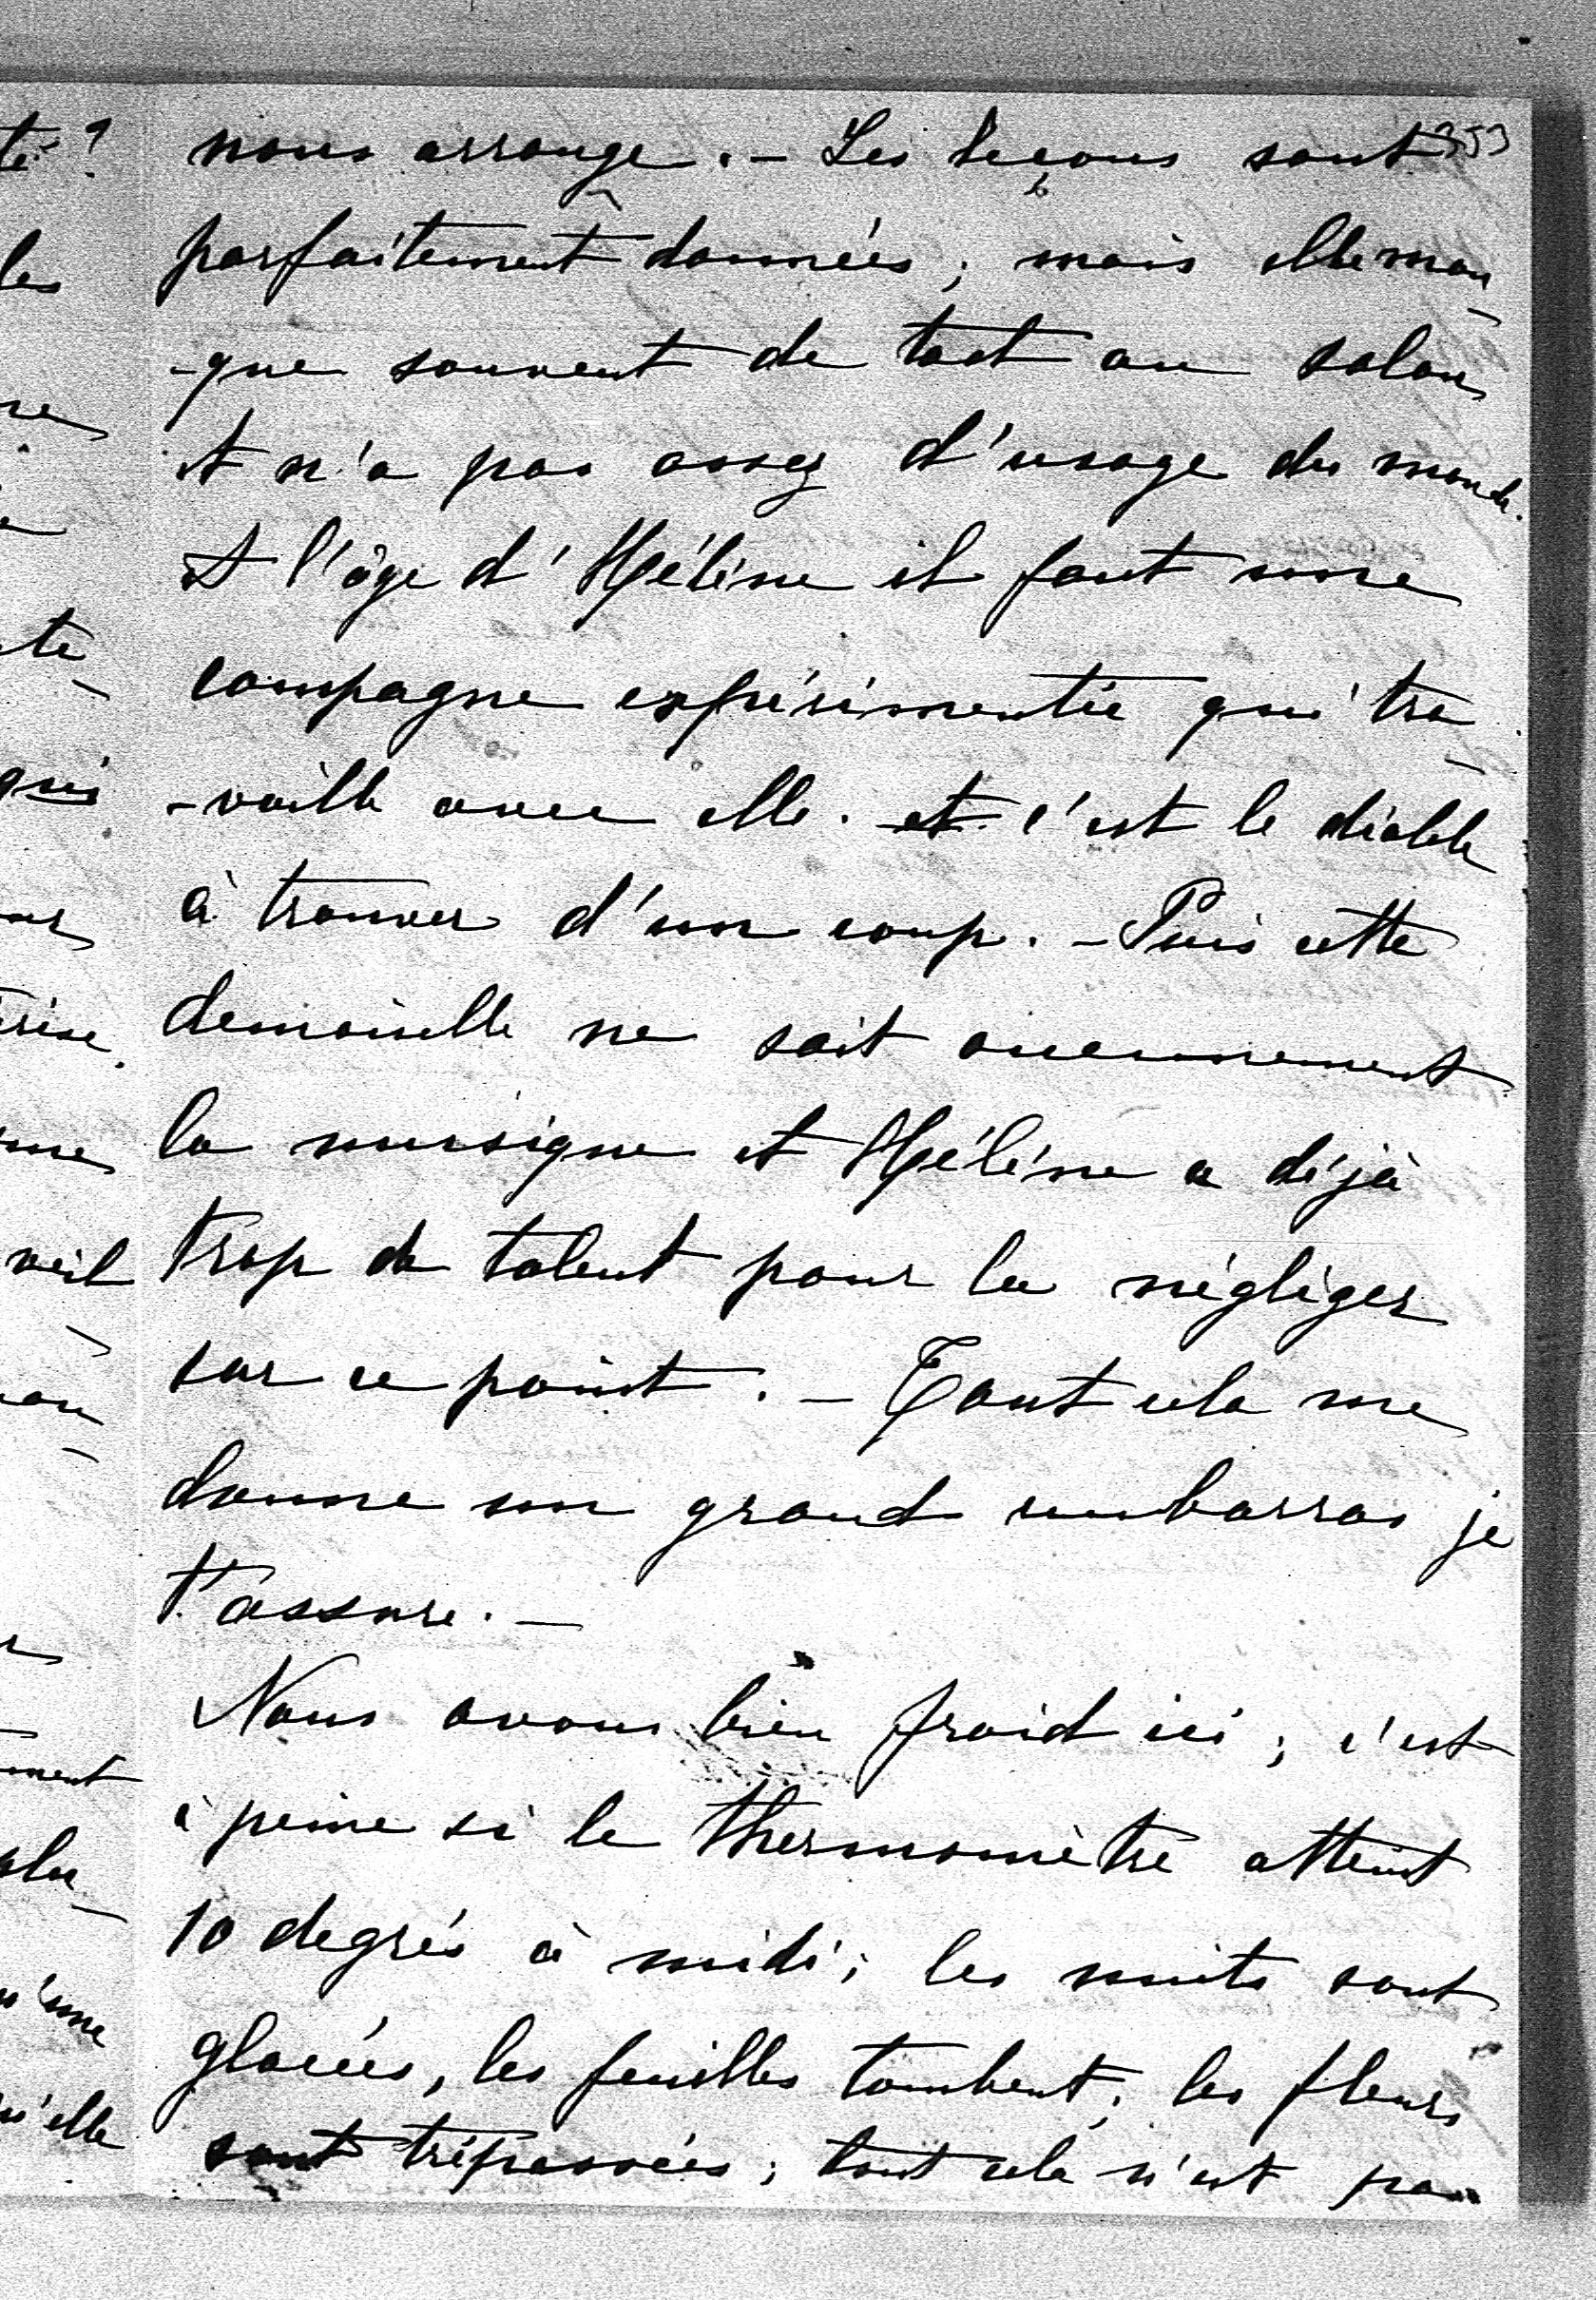 353
nous arrange. - Les leçons sont
parfaitement données; mais elle man-
-que souvent de tact au salon
et n'a pas assez d'usage du monde.
A l'âge d'Hélène il faut une
compagne expérimentée qui tra-
-vaille avec elle. et c'est le diable
à trouver d'un coup. - Puis cette
demoiselle ne sait aucunement
la musique et Hélène a déjà
trop de talent pour la négliger
sur ce point. - Tout cela me
donne un grand embarras je
t'assure. -
Nous avons bien froid ici; c'est
à peine si le thermomètre atteint
10 degrés à midi; les nuits sont
glacées, les feuilles tombent; les fleurs
sont trépassées; tout cela n'est pas